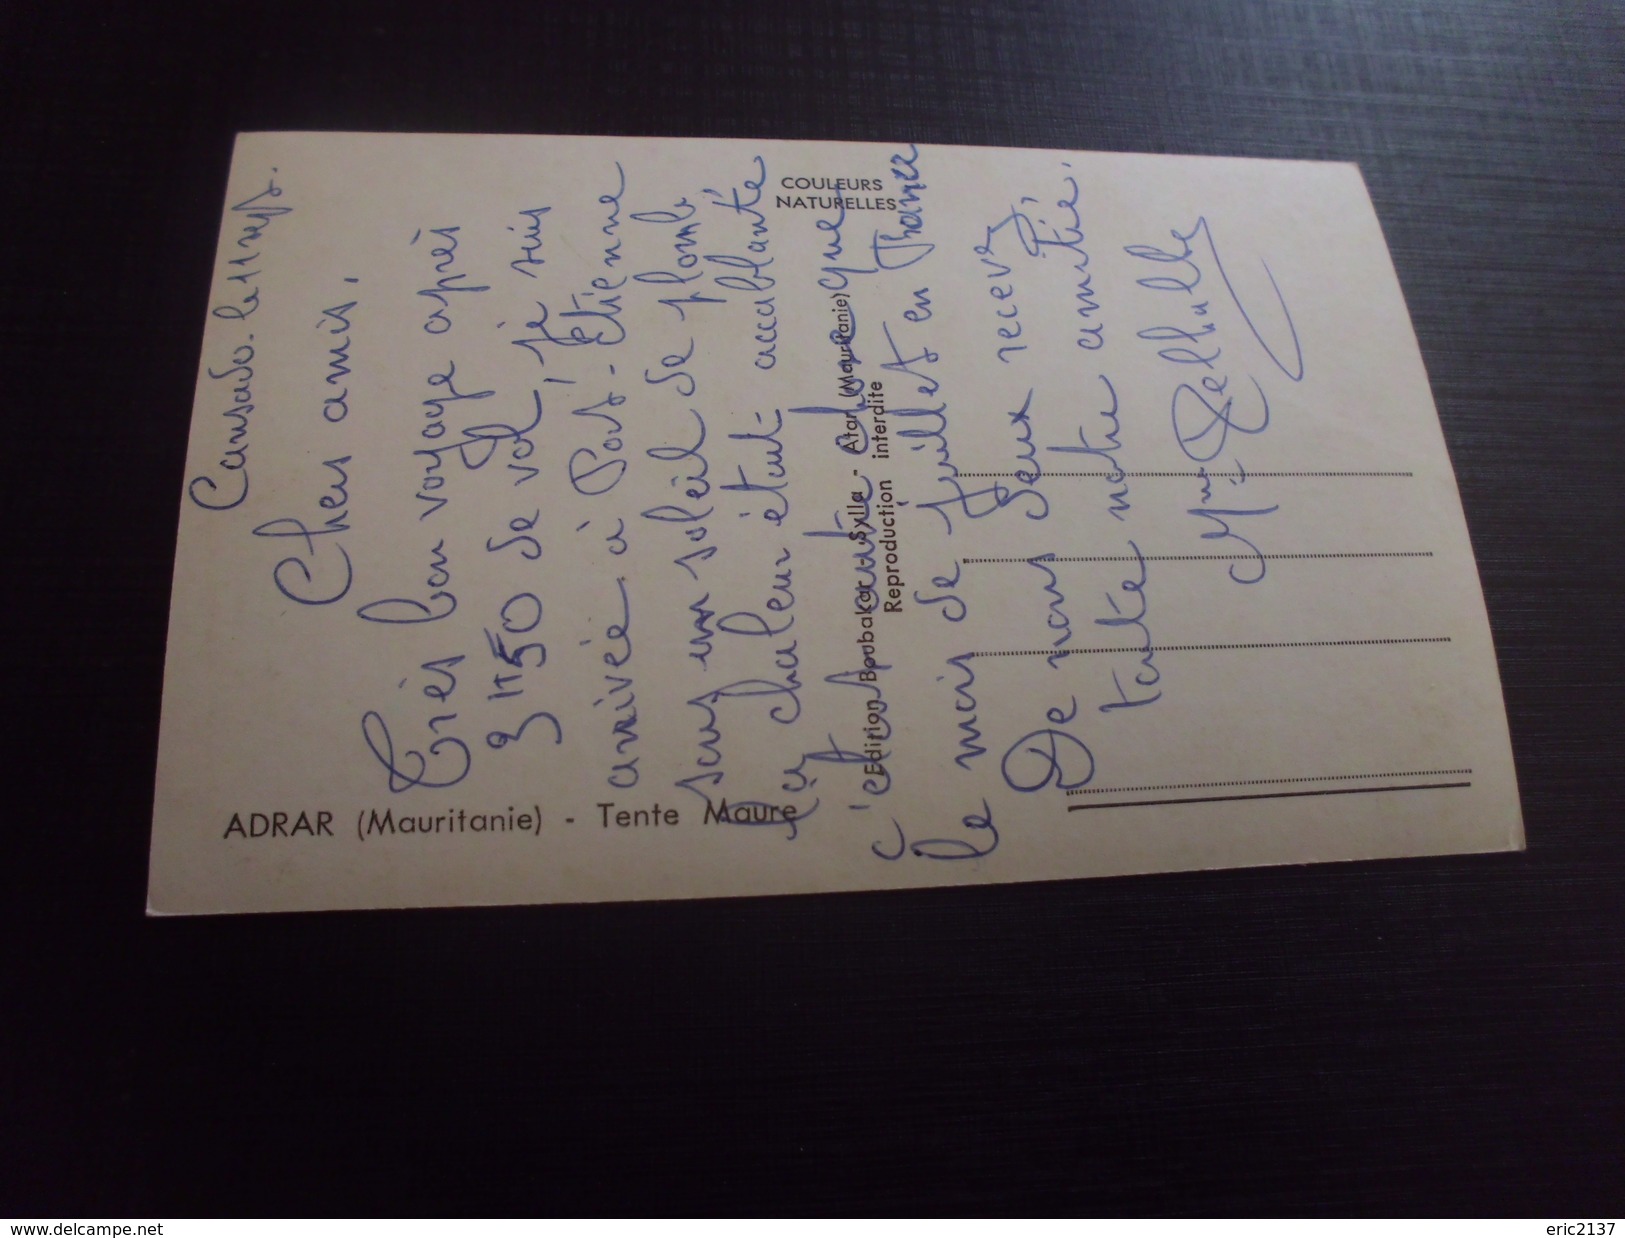 Cansado. le 11
Chers amis,
Très bon voyage après
3H50 de vol, je suis
arrivée à Port-Etienne
sous un soleil de plomb
la chaleur étant accablante
c'est que
le mois de Juillet en France
De nous deux recevez,
toute notre amitié.
Mme
ADRAR (Mauritanie) - Tente Maure
COULEURS
NATURELLES
Edition Boubakar Sylla - Atar (Mauritanie)
Reproduction interdite
www.delcampe.net
eric2137